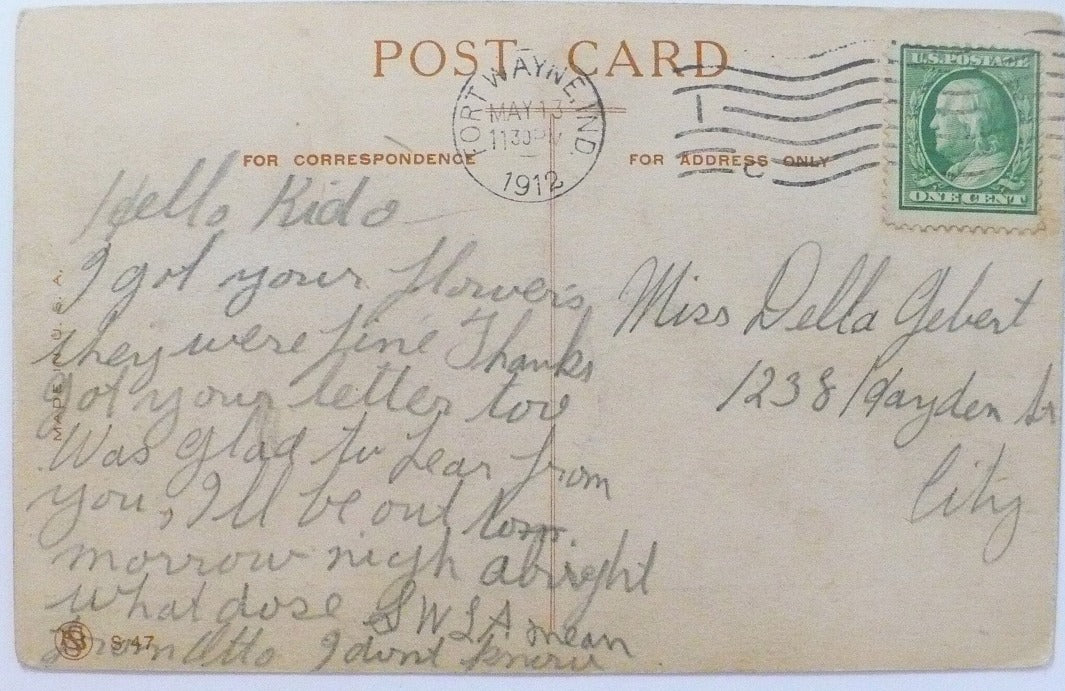 POST CARD
FORT WAYNE, IND.
MAY 13
1130 PM
1912
U.S. POSTAGE
ONE CENT
FOR CORRESPONDENCE
FOR ADDRESS ONLY
MADE IN U.S.A.
Hello Kido
I got your flowers
they were fine Thanks
Got your letter too
Was glad to hear from
you, I'll be out tom
morrow nigh alright
What dose SWSA mean
From Otto I dont know
S-47
Miss Della Gebert
1238 Hayden St
City